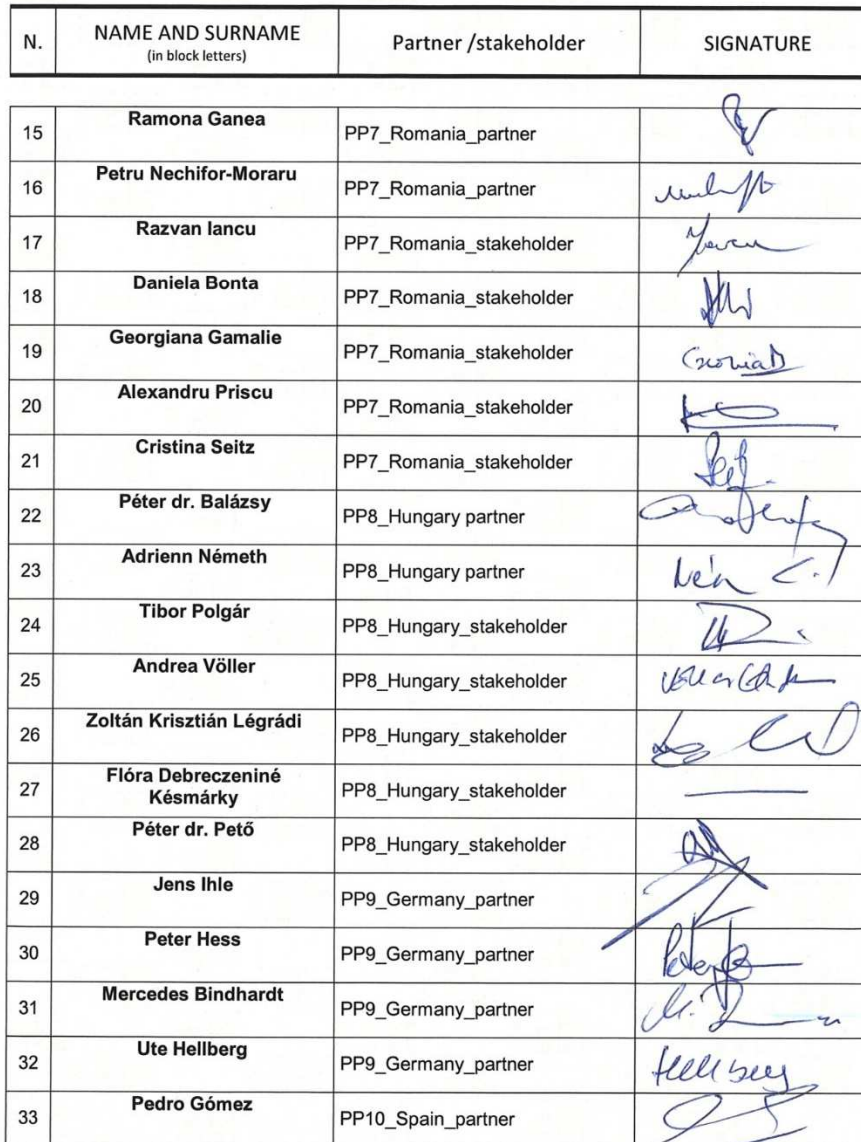 N. NAME AND SURNAME Partner /stakeholder SIGNATURE
(in block letters)
15 Ramona Ganea PP7_Romania_partner
16 Petru Nechifor-Moraru PP7_Romania_partner
17 Razvan Iancu PP7_Romania_stakeholder
18 Daniela Bonta PP7_Romania_stakeholder
19 Georgiana Gamalie PP7_Romania_stakeholder
20 Alexandru Priscu PP7_Romania_stakeholder
21 Cristina Seitz PP7_Romania_stakeholder
22 Péter dr. Balázsy PP8_Hungary partner
23 Adrienn Németh PP8_Hungary partner
24 Tibor Polgár PP8_Hungary_stakeholder
25 Andrea Völler PP8_Hungary_stakeholder
26 Zoltán Krisztián Légrádi PP8_Hungary_stakeholder
27 Flóra Debreczeniné PP8_Hungary_stakeholder
Késmárky
28 Péter dr. Pető PP8_Hungary_stakeholder
29 Jens Ihle PP9_Germany_partner
30 Peter Hess PP9_Germany_partner
31 Mercedes Bindhardt PP9_Germany_partner
32 Ute Hellberg PP9_Germany_partner Hellberg
33 Pedro Gómez PP10_Spain_partner